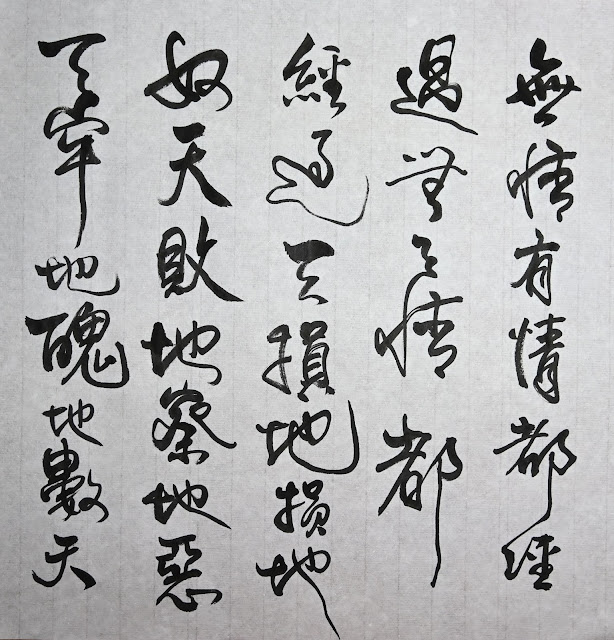 無情有情都經
過無情都
經過天損地損地
奴天敗地察地惡
天地醜地數天